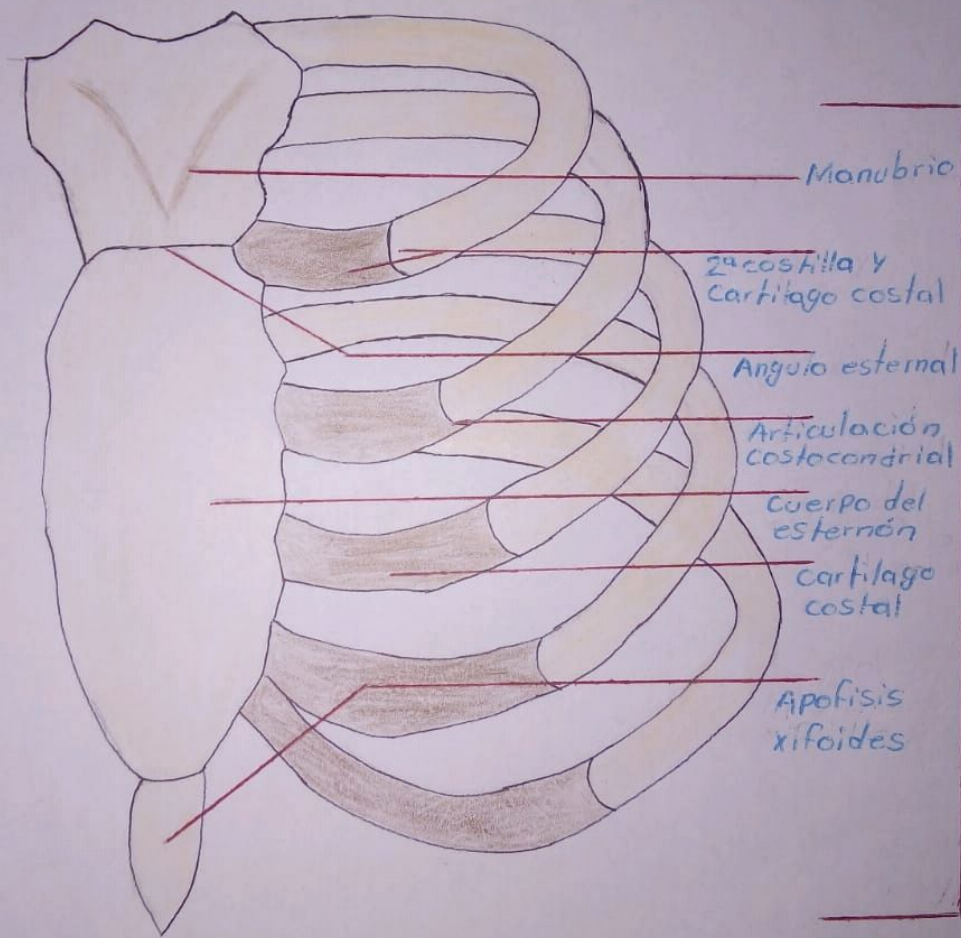 Manubrio
2ª costilla y
Cartilago costal
Angulo esternal
Articulación
costocondrial
Cuerpo del
esternón
Cartilago
costal
Apofisis
xifoides